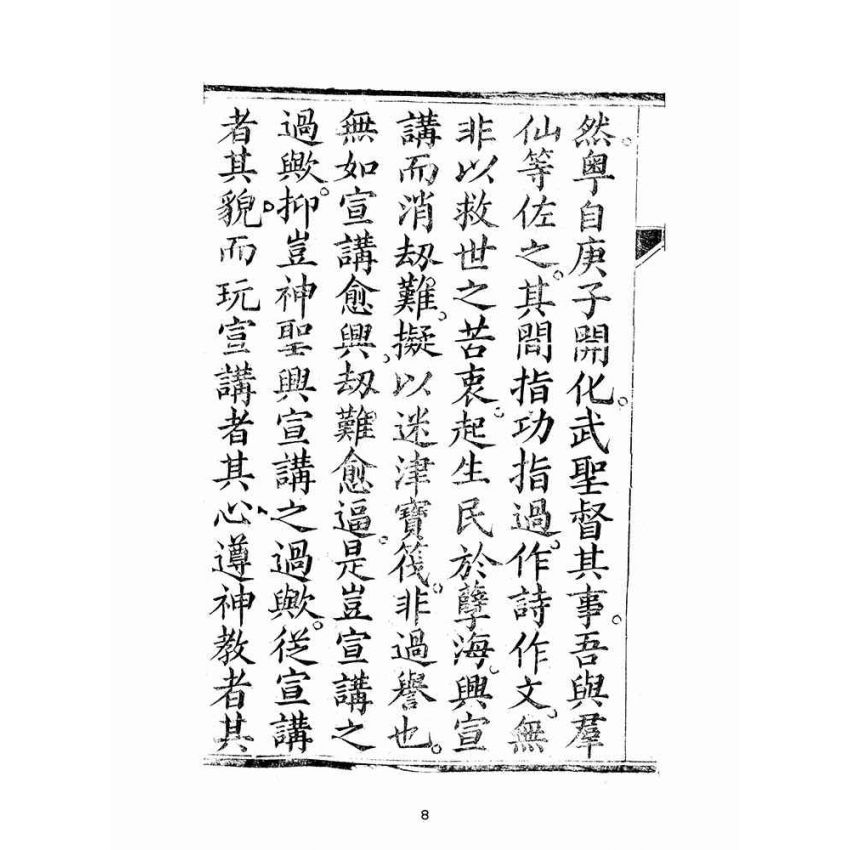 然。粵自庚子開化。武聖督其事。吾與羣
仙等佐之。其間指功指過。作詩作文。無
非以救世之苦衷。起生民於孽海。興宣
講而消刧難。擬以迷津寶筏。非過譽也。
無如宣講愈興。刧難愈逼。是豈宣講之
過歟。抑豈神聖興宣講之過歟。從宣講
者其貌。而玩宣講者其心。遵神教者其
8